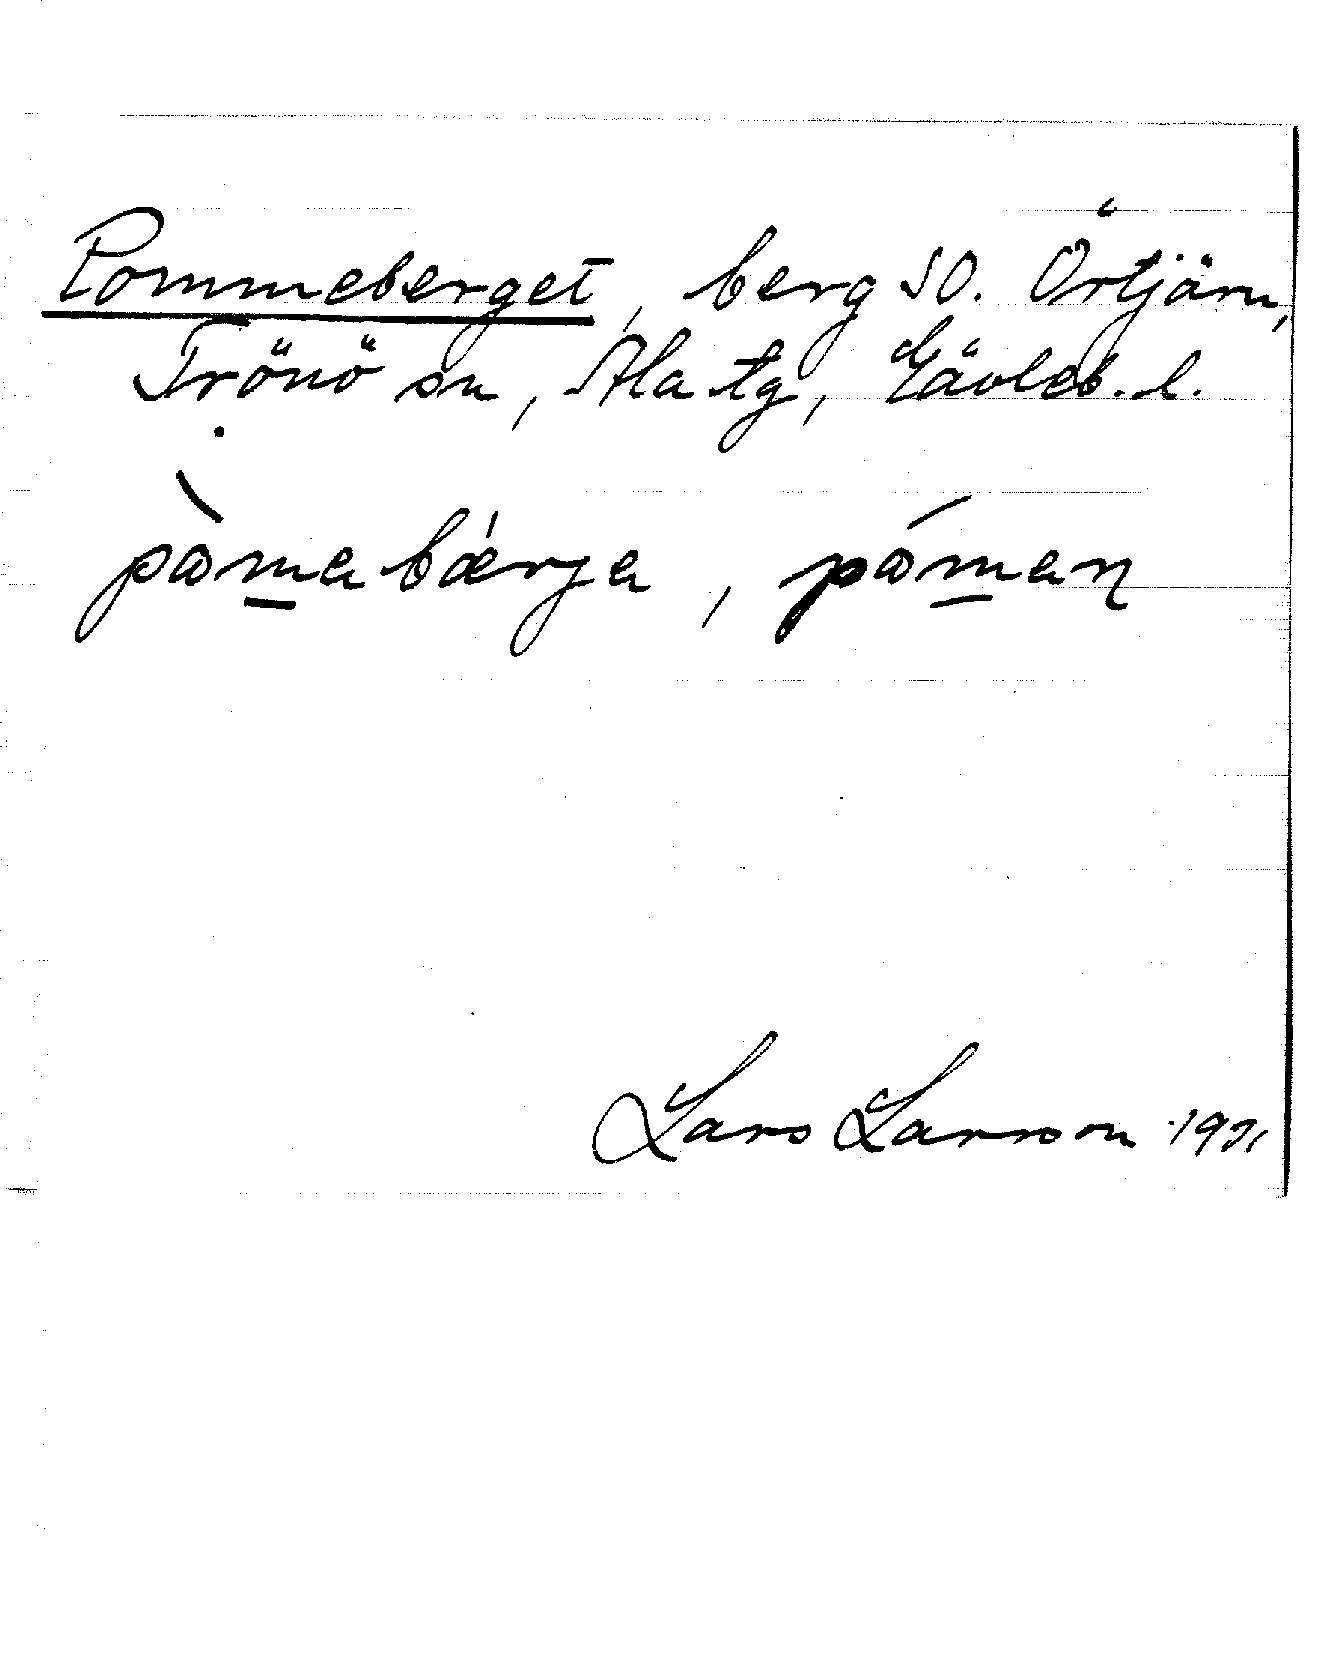 Pommeberget, berg SO. Örtjärn,
Trönö sn, Ala tg, Gävleb. l.
pòmabǽrja, póman
Lars Larsson 1931